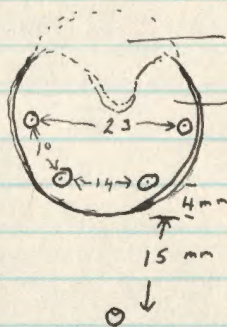 23
10
14
4 mm
15 mm